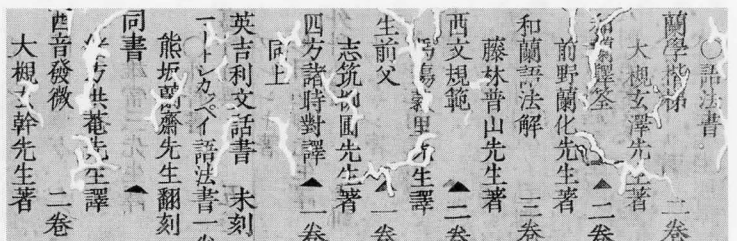 〇語法書
蘭學階梯 二卷
大槻玄澤先生著
和蘭譯筌 ▲二卷
前野蘭化先生著
和蘭語法解 三卷
藤林普山先生著
西文規範 ▲二卷
馬場 里先生譯
生前父 一卷
志筑 圃先生著
四方諸時對譯 ▲一卷
同上
英吉利文話書 未刻
ートレカッペイ語法書一
熊坂蘭齋先生翻刻
同書 ▲
方洪菴先生譯
西音發微 二卷
大槻玄幹先生著